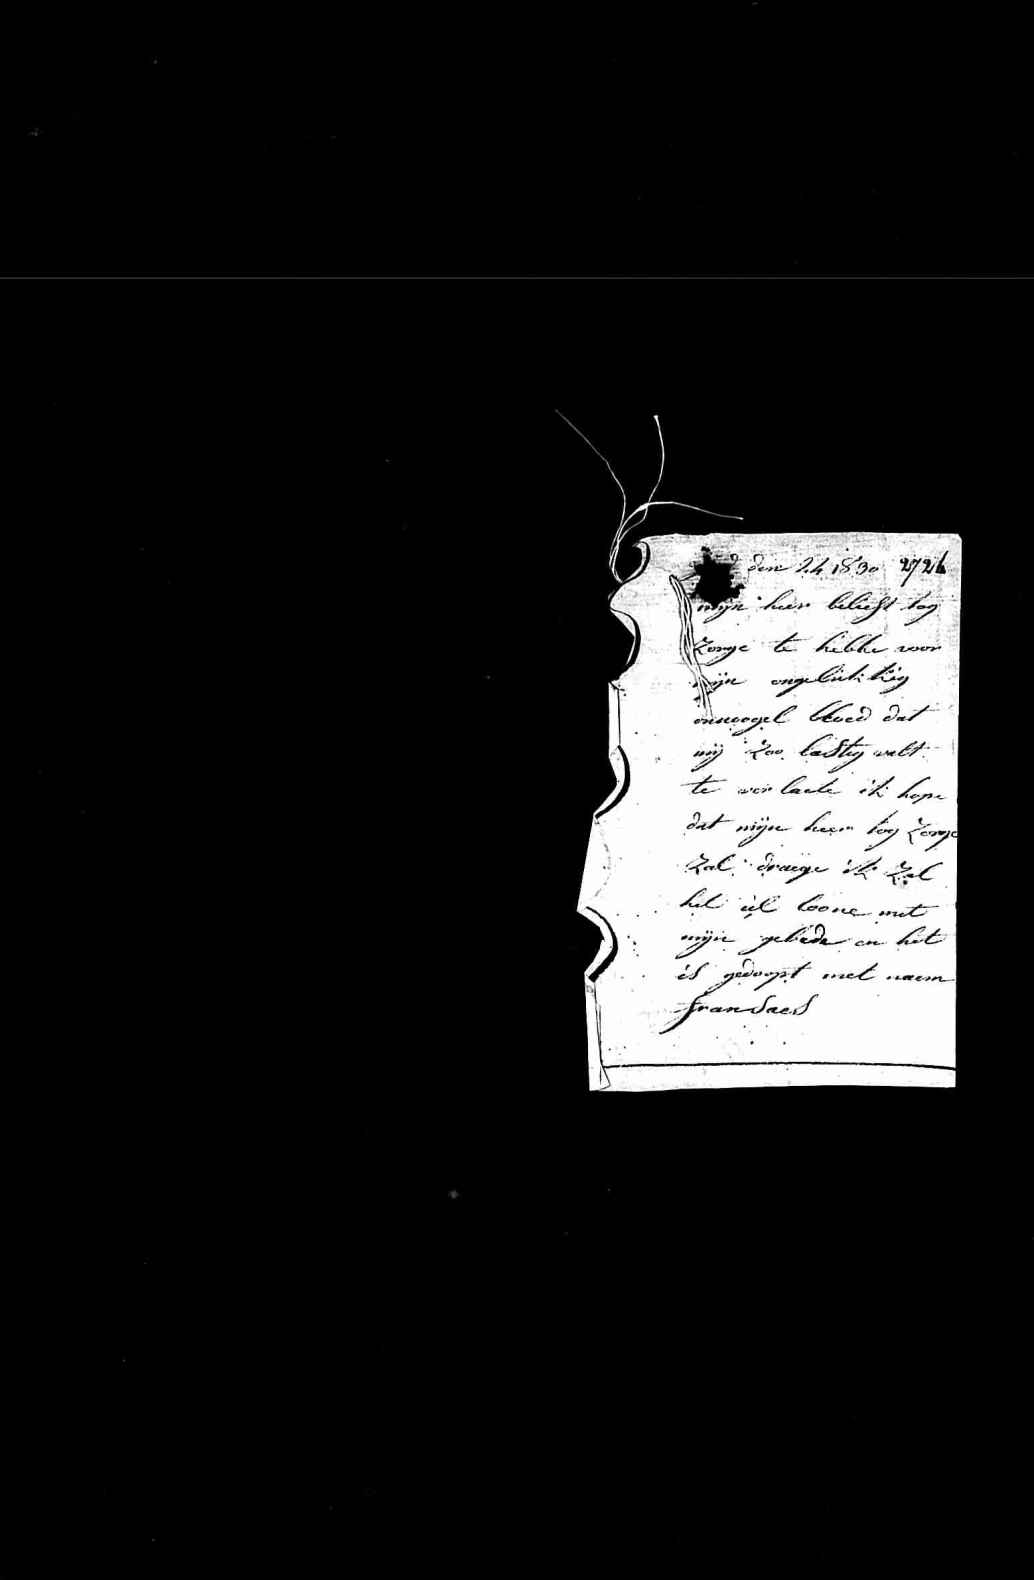 den 24 1830 2726
mijn heer belieft tog
zorge te hebbe voor
mijn ongelukkig
onnoogel bloed dat
mij zoo lastig valt
te verlaete ik hope
dat mijn heer tog zorge
zal draege ik zal
het ul loone met
mijn gebede en het
is gedoopt met naem
fransaes